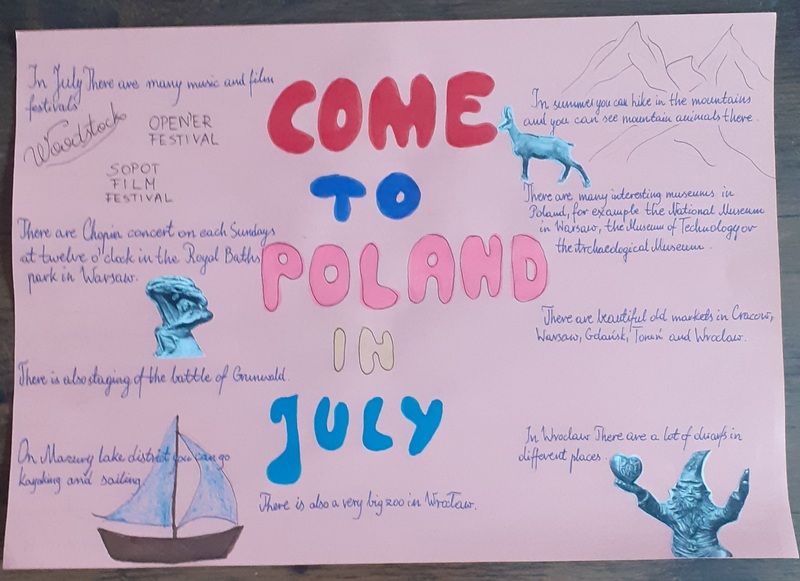 COME
TO
POLAND
IN
JULY
In July There are many music and film
festivals
Woodstock
OPEN'ER
FESTIVAL
SOPOT
FILM
FESTIVAL
There are Chopin concert on each Sundays
at twelve o'clock in the Royal Baths
park in Warsaw.
There is also staging of the battle of Grunwald.
On Mazury lake district you can go
kayaking and sailing
There is also a very big zoo in Wrocław.
In summer you can hike in the mountains
and you can see mountain animals there.
There are many interesting museums in
Poland, for example the National Museum
in Warsaw, the Museum of Technology or
the Archaeological Museum.
There are beautiful old markets in Cracow,
Warsaw, Gdańsk, Toruń and Wroclaw.
In Wroclaw There are a lot of dwarfs in
different places.